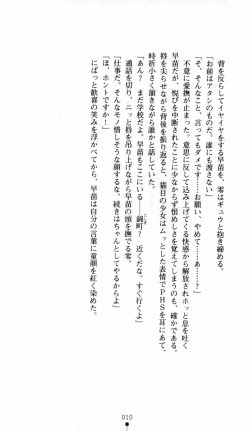 背を反らしてイヤイヤをする早苗を、零はギュウと抱き締める。
「お前はアタシのもの。誰にも渡さない」
「そ、そんなこと、言ってもダメです……お願い、やめて……あ……？」
不意に愛撫が止まった。意思に反して込み上げてくる快感から解放されホッと息を吐く
早苗だが、悦びを中断されたことに少なからず恨めしさを覚えてしまうのも、確かである。
唇を尖らせながら背後を振り返ると、猫目の少女はムッとした表情でPHSを耳にあて、
時折小さく頷きながら誰かと話していた。
「あん？ まだ学校だよ。早苗もここにいる――錦町？ 近くだな。すぐ行くよ」
通話を切り、ニッと唇の端を吊り上げながら早苗の頭を撫でる零。
「仕事だ。そんなモノ惜しそうな顔するな。続きはちゃんとしてやるからよ」
「ほ、ホントですか！」
にぱっと歓喜の笑みを浮かべてから、早苗は自分の言葉に童顔を紅く染めた。
010